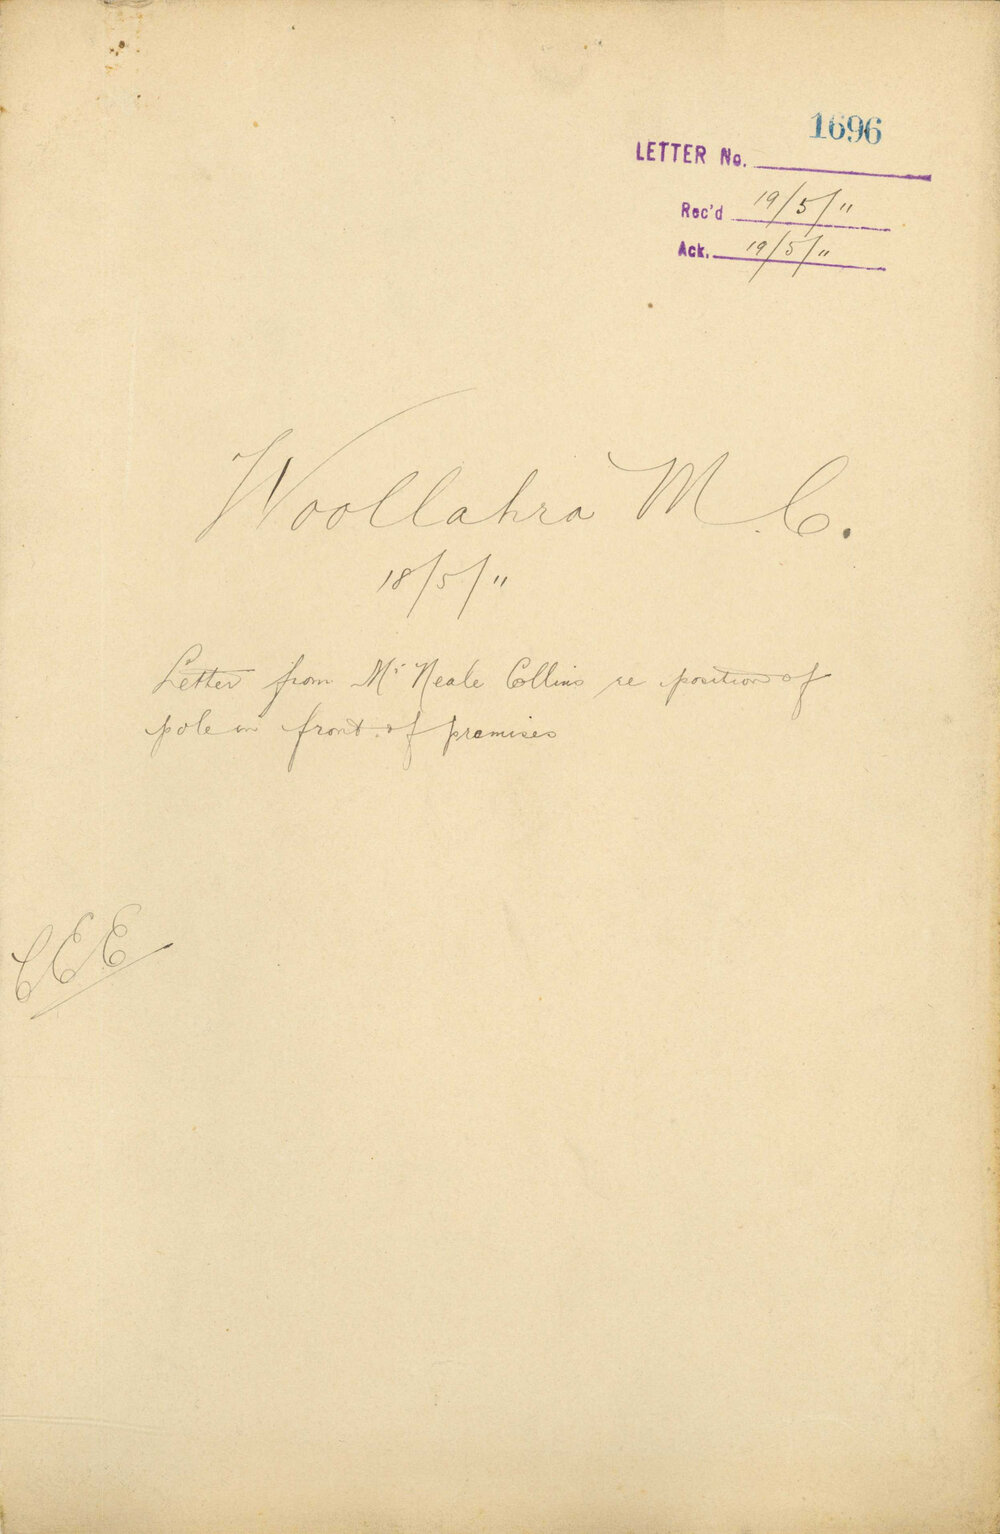 1696
LETTER No.
Rec'd 19/5/11
Ack. 19/5/11
Woollahra M.C.
18/5/11
Letter from Mr Neale Collins re position of
pole in front of premises
CEE